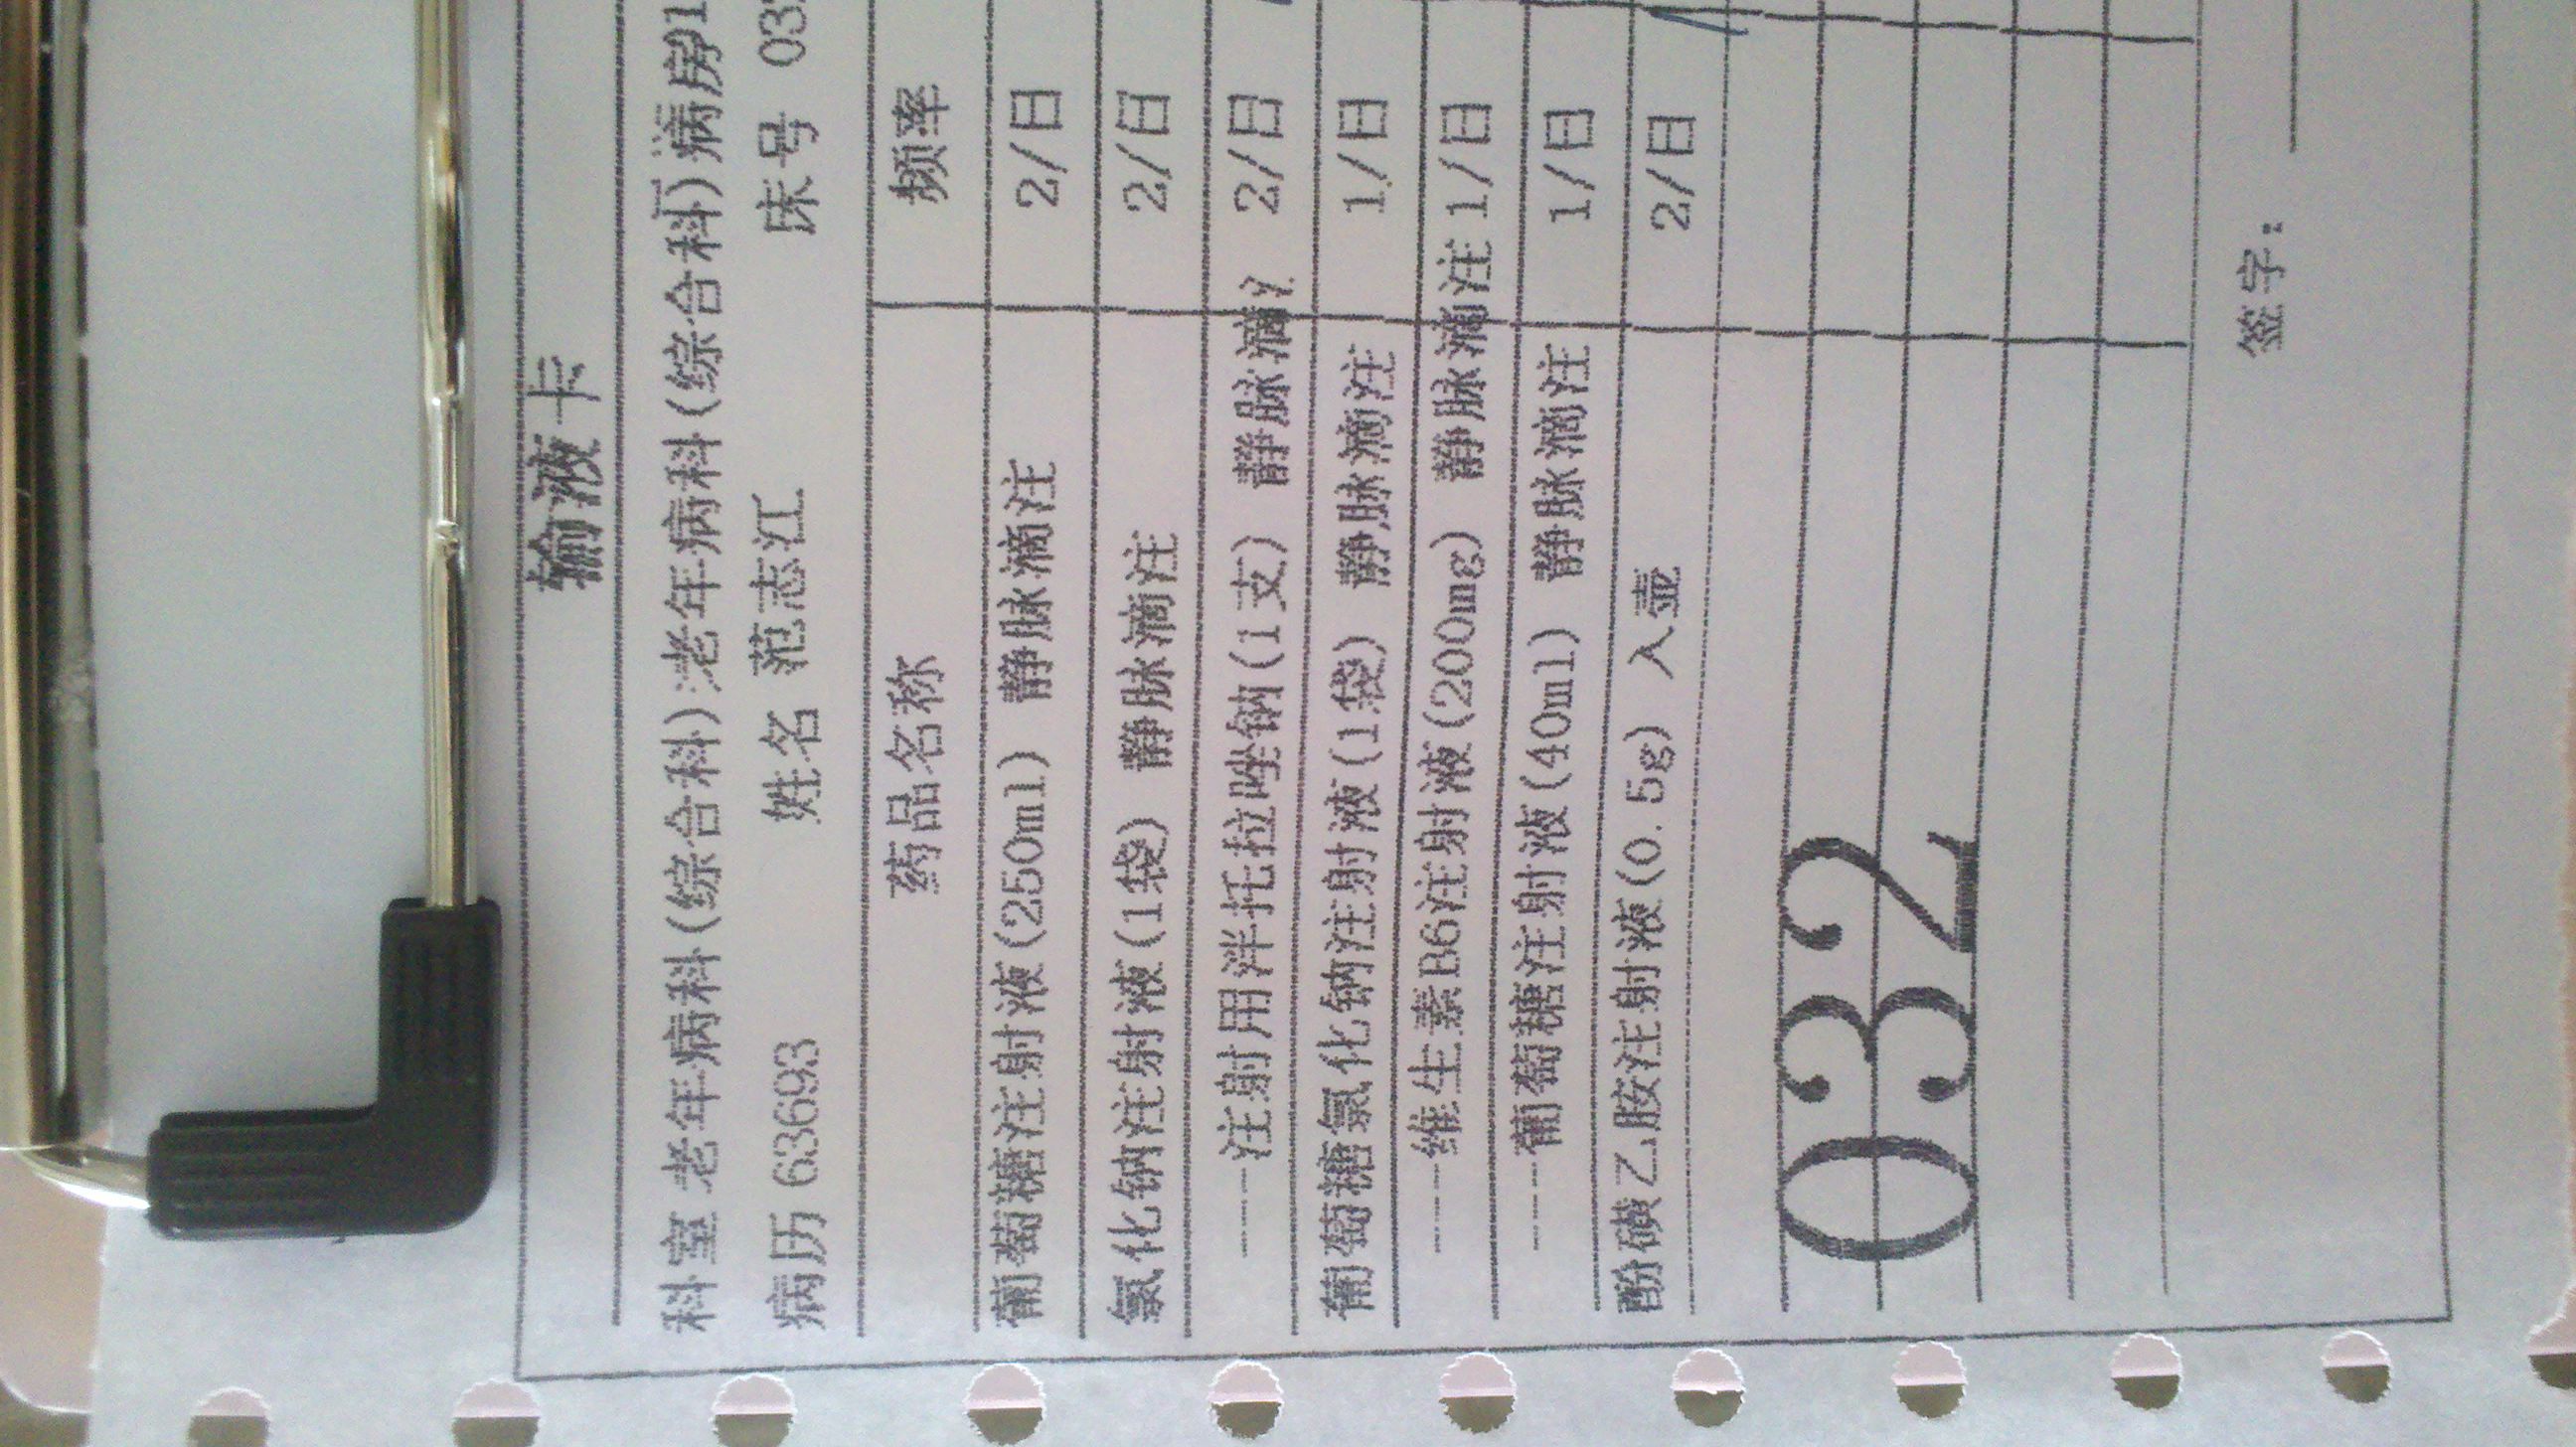 输液卡
科室 老年病科(综合科):老年病科(综合科)病房1
病历 63693 姓名 范志江 床号 03
药品名称 频率
葡萄糖注射液(250ml) 静脉滴注 2/日
氯化钠注射液(1袋) 静脉滴注 2/日
----注射用泮托拉唑钠(1支) 静脉滴 2/日
葡萄糖氯化钠注射液(1袋) 静脉滴注 1/日
----维生素B6注射液(200mg) 静脉滴注 1/日
----葡萄糖注射液(40ml) 静脉滴注 1/日
酚磺乙胺注射液(0.5g) 入壶 2/日
032
签字: